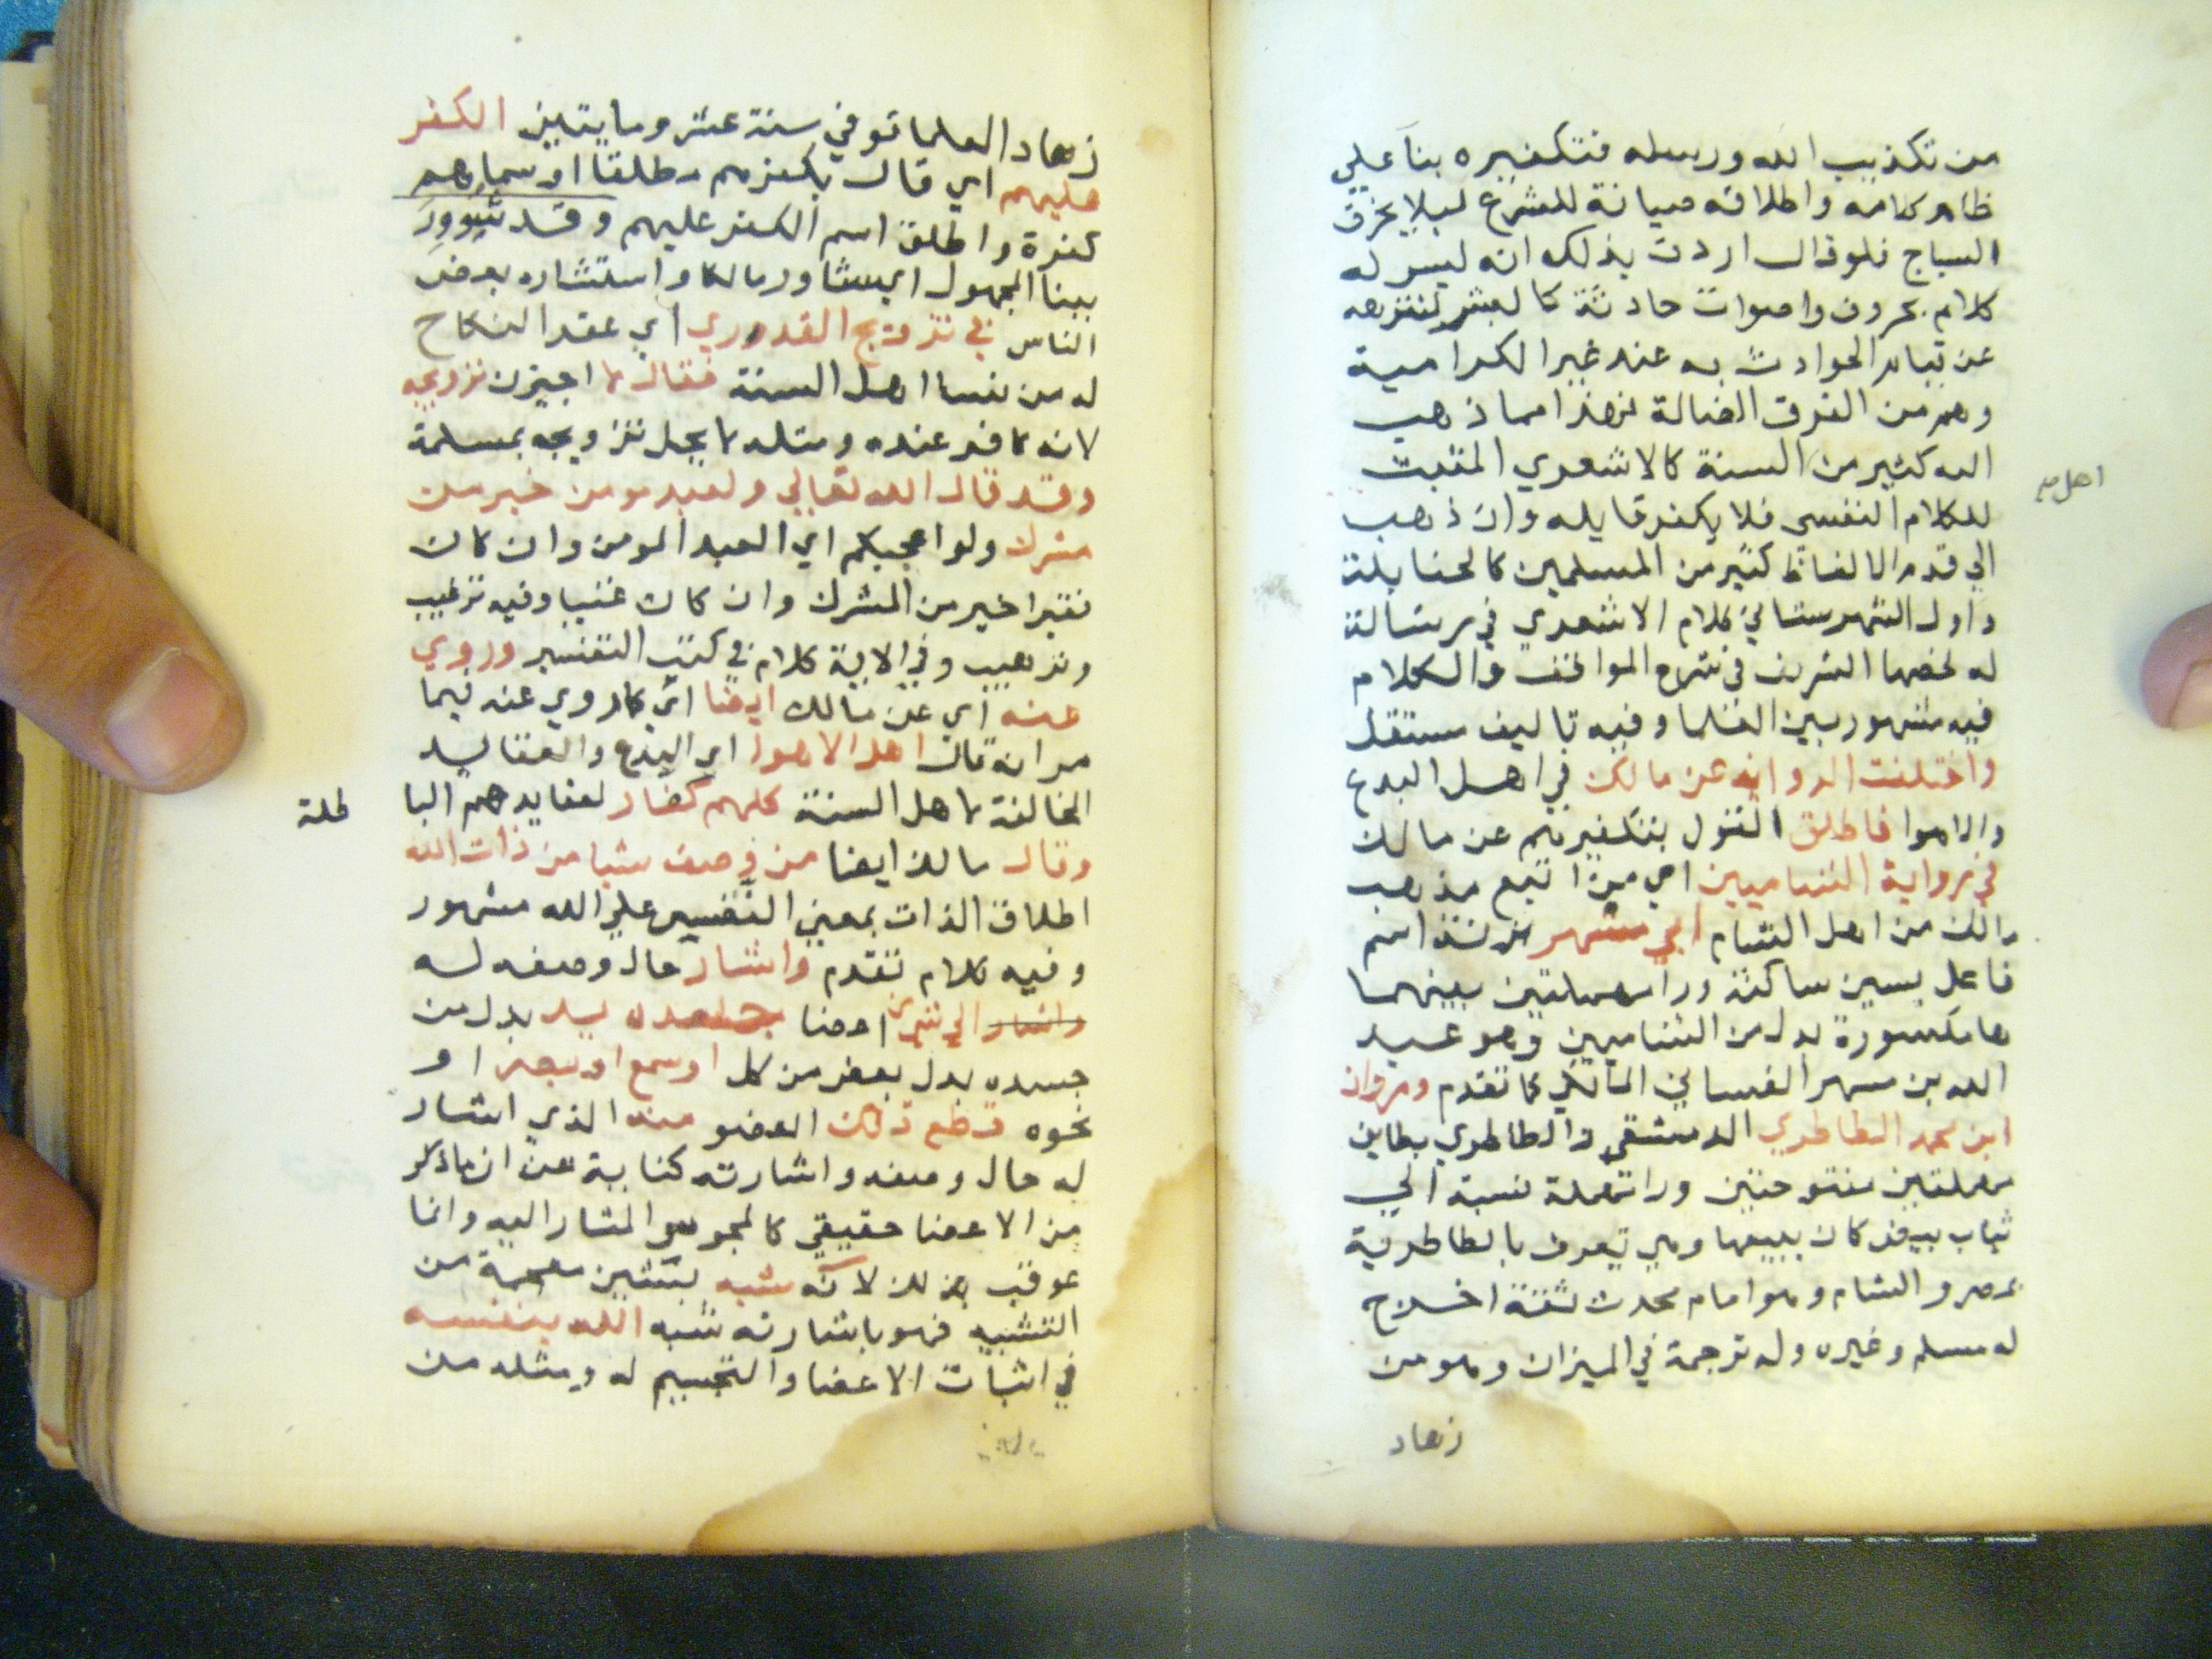 من تكذيب الله ورسله فتكفيره بنآ علي
ظاهر كلامه واطلاقه صيانة للشرع ليلا يخرق
السياج فلو قال اردت بذلك انه ليس له
كلام بحروف واصوات حادثة كالبشر لتنزهه
عن قيام الحوادث به عند غير الكرامية
وهم من الفرق الضالة فهذا مما ذهب
اليه كثير من السنة كالاشعري المثبت
اهل صح
للكلام النفسي فلا يكفر قايله وان ذهب
الي قدم الالفاظ كثير من المسلمين كالحنابلة
واول الشهرستاني كلام الاشعري في رسالة
له لخصها الشريف في شرح المواقف والكلام
فيه مشهور بين الفضلا وفيه تاليف مستقل
واختلفت الرواية عن مالك في اهل البدع
والاهوا فاطلق القول بتكفيرهم عن مالك
في رواية الشاميين اي من اتبع مذهب
مالك من اهل الشام ابي مسهر بزنة اسم
فاعل بسين ساكنة ورا مهملتين بينهما
ها مكسورة بدل من الشاميين وهو عبد
الله بن مسهر الغساني المالكي كما تقدم ومروان
ابن محمد الطاطري الدمشقي والطاطري بطاين
مهملتين مفتوحتين ورا مهملة نسبة الي
ثياب بيض كان يبيعها وهي تعرف بالطاطرية
بمصر والشام وهو امام محدث ثقة اخرج
له مسلم وغيره وله ترجمة في الميزان وهو من
زهاد
زهاد العلما توفي سنة عشر ومايتين الكفر
عليهم اي قال بكفرهم مطلقا او سماهم
كفرة واطلق اسم الكفر عليهم وقد شُوورَ
ببنا المجهول اي شاور مالكا واستشاره بعض
الناس في تزويج القدري اي عقد النكاح
له من نسا اهل السنة فقال لا اجيزن تزويجه
لانه كافر عنده ومثله لا يحل تزويجه بمسلمة
وقد قال الله تعالي ولعبد مومن خير من
مشرك ولو اعجبكم اي العبد المومن وان كان
فقيرا خير من المشرك وان كان غنيا وفيه ترغيب
وترهيب وفي الاية كلام في كتب التفسير وروي
عنه اي عن مالك ايضا اي كما روي عنه فيما
مر انه قال اهل الاهوا اي البدع والعقايد
المخالفة لاهل السنة كلهم كفار لعقايدهم البا
طلة
وقال مالك ايضا من وصف شيا من ذات الله
اطلاق الذات بمعني النفس علي الله مشهور
وفيه كلام تقدم واشار حال وصفه له
واشار الي شي من اعضا جسده يد بدل من
جسده بدل بعض من كل او سمع او بصر او
نحوه قطع ذلك العضو منه الذي اشار
له حال وصفه واشارته كناية عن ان ما ذكر
من الاعضا حقيقي كالمحسوس المشار اليه وانما
عوقب بذلك لانه شبه بشين معجمة من
التشبيه فهو باشارته شبه الله بنفسه
في اثبات الاعضا والتجسيم له ومثله من